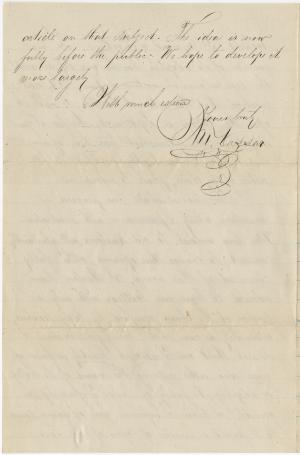 article on that subject. The idea is now
fully before the public. We hope to develope it
more largely
With much esteem
Yours truly
M.